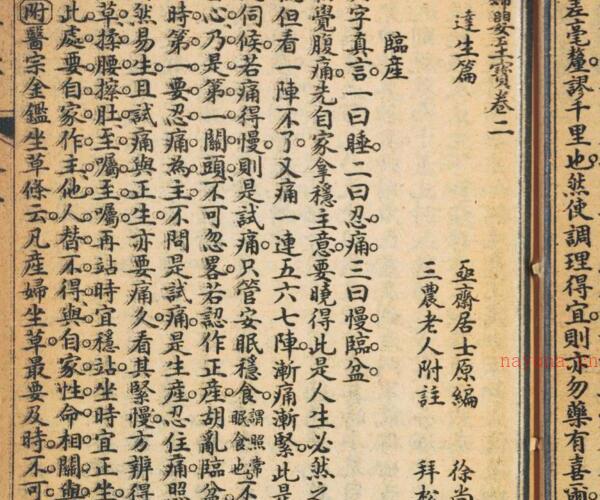 差毫釐謬千里也然使調理得宜則亦勿藥有喜
婦嬰至寶卷二
達生篇
亟齋居士原編 徐尚
三農老人附註 拜松
臨産
字真言一曰睡二曰忍痛三曰慢臨盆
覺腹痛先自家拿穩主意要曉得此是人生必然之
但看一陣不了又痛一連五六七陣漸痛漸緊此是
伺候若痛得慢則是試痛只管安眠穩食謂照常眠食也不
心乃是第一關頭不可忽畧若認作正産胡亂臨盆
時第一要忍痛為主不問是試痛是生産忍住痛照
然易生且試痛與正生亦要痛久看其緊慢方辨得
草揉腰擦肚至囑至囑再站時宜穩站坐時宜正坐
此處要自家作主他人替不得與自家性命相關與
附醫宗金鑑坐草條云凡産婦坐草最要及時不可